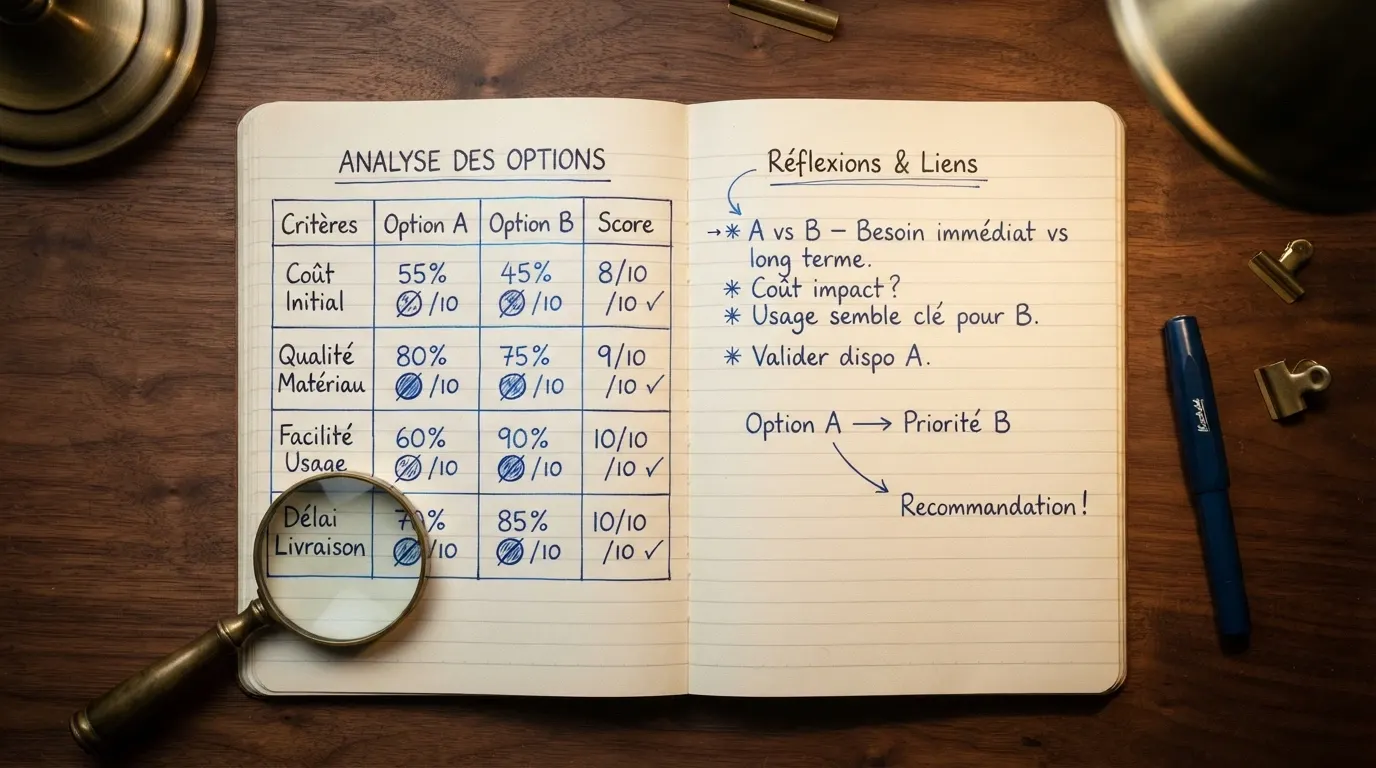 ANALYSE DES OPTIONS
Critères Option A Option B Score
Coût 55% 45% 8/10
Initial /10 /10 /10 ✓
Qualité 80% 75% 9/10
Matériau /10 /10 /10 ✓
Facilité 60% 90% 10/10
Usage /10 /10 /10 ✓
Délai 85% 10/10
Livraison /10 /10 /10 ✓
Réflexions & Liens
→ * A vs B – Besoin immédiat vs
long terme.
* Coût impact ?
* Usage semble clé pour B.
* Valider dispo A.
Option A → Priorité B
Recommandation !